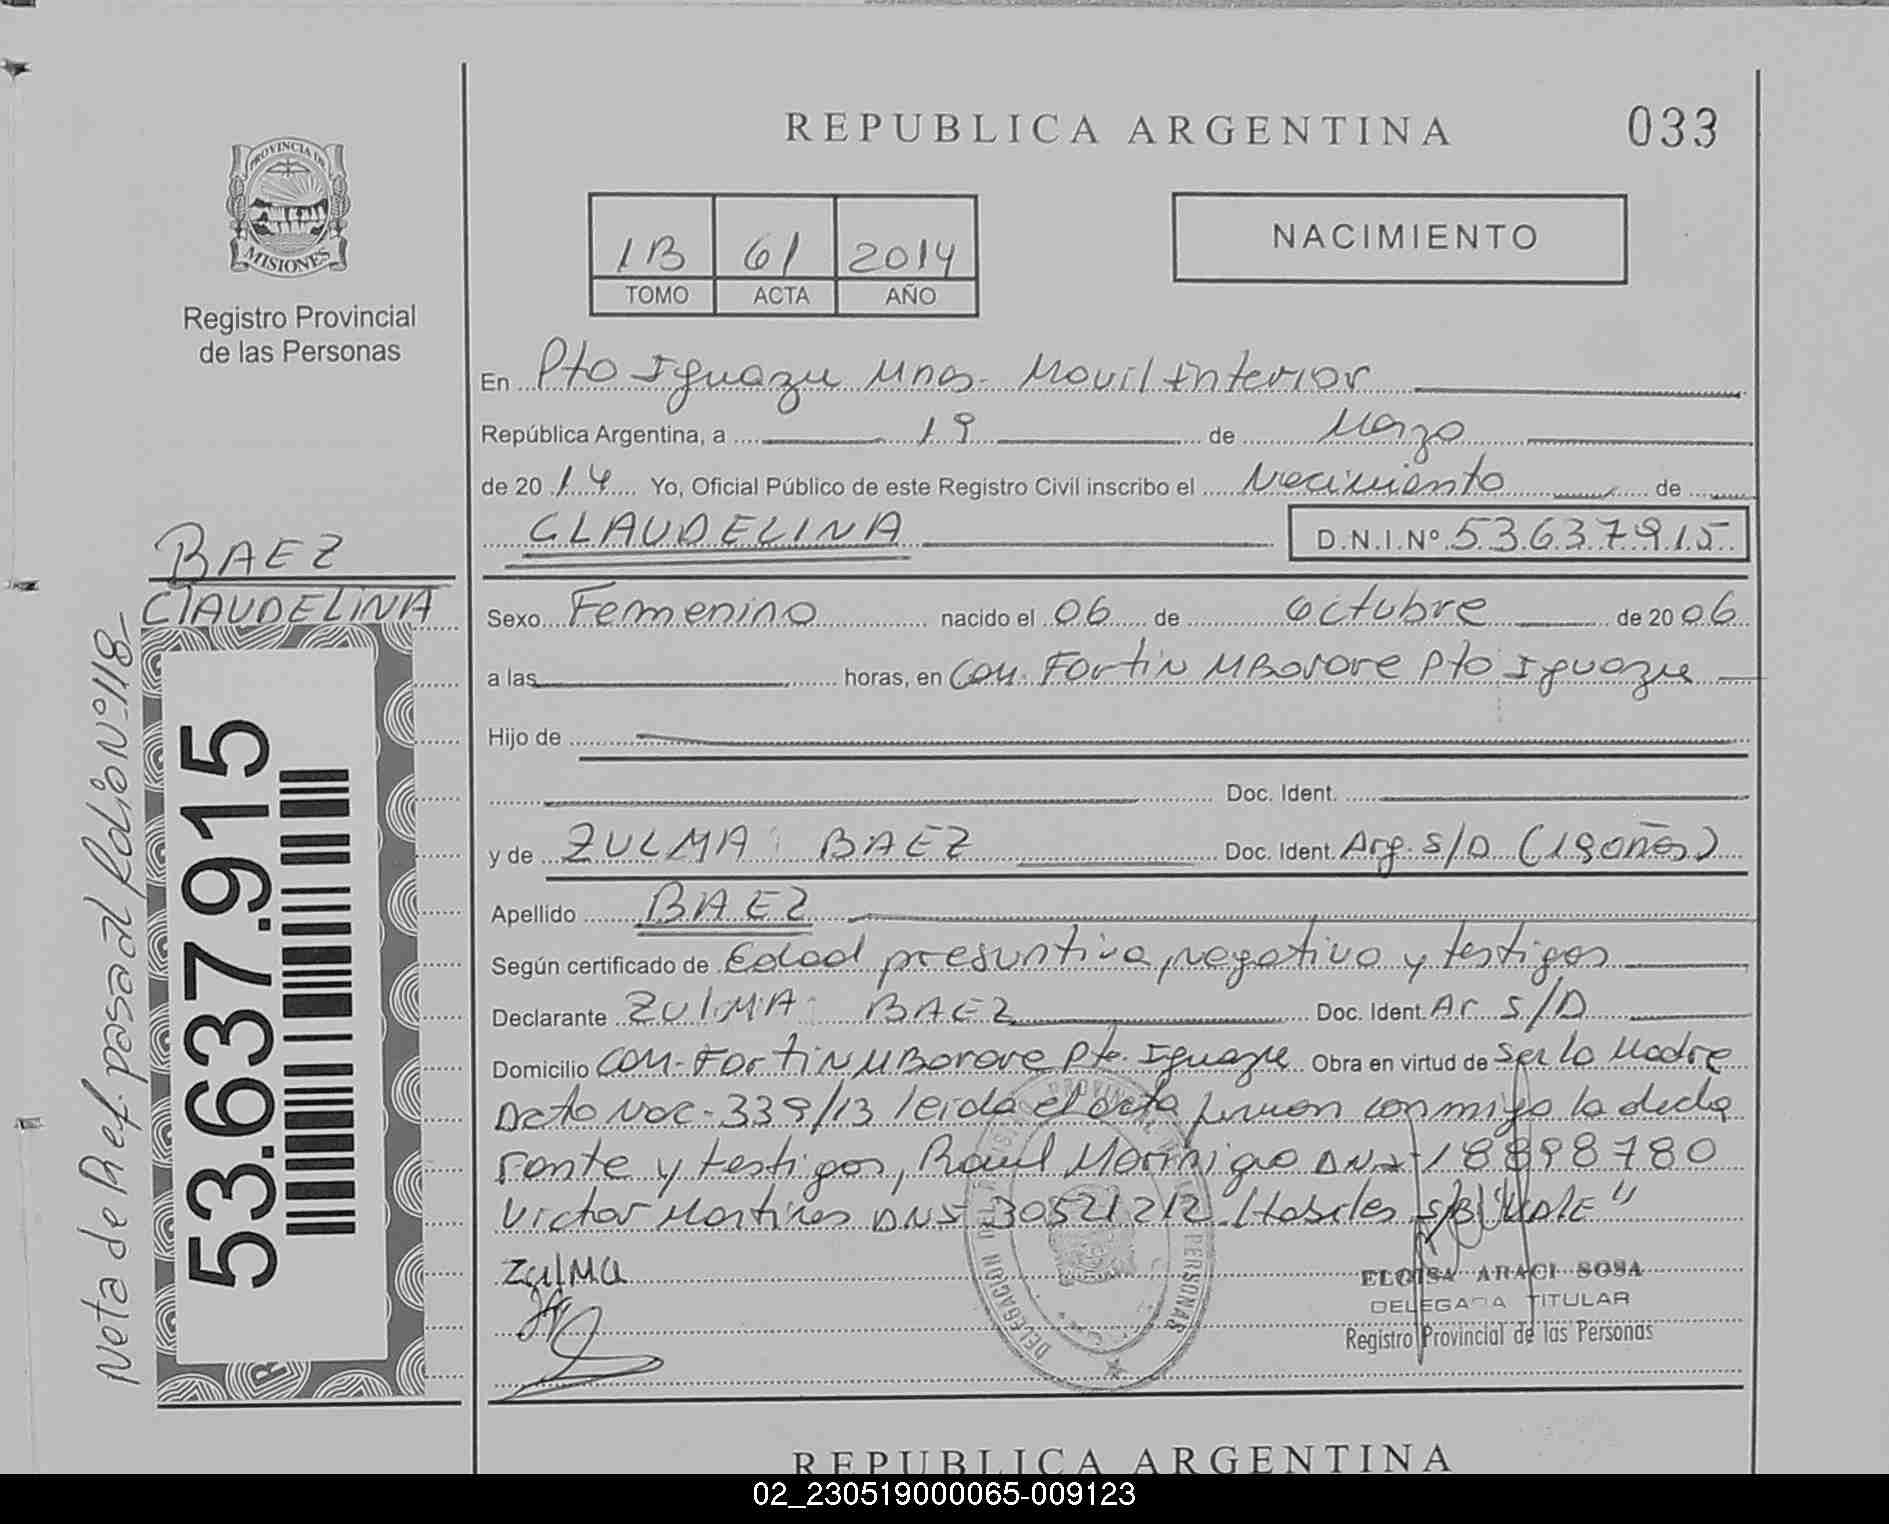 REPUBLICA ARGENTINA
033
PROVINCIA DE
MISIONES
Registro Provincial
de las Personas
1B 61 2014
TOMO ACTA AÑO
NACIMIENTO
En Pto Iguazu Mnes. Movil Interior
República Argentina, a 19 de Marzo
de 2014 Yo, Oficial Público de este Registro Civil inscribo el Nacimiento de
CLAUDELINA D.N.I.Nº 53637915
BAEZ
CLAUDELINA
Nota de Ref. pasada al folio Nº 118
53.637.915
Sexo Femenino nacido el 06 de Octubre de 2006
a las horas, en Com. Fortin MBorore Pto Iguazu
Hijo de
Doc. Ident.
y de ZULMA BAEZ Doc. Ident. Arg. S/D (19 años)
Apellido BAEZ
Según certificado de Edad presuntiva, negativa y testigos
Declarante ZULMA BAEZ Doc. Ident. Ar S/D
Domicilio Com. Fortin MBorore Pto. Iguazu Obra en virtud de ser la Madre
Dcto Nac. 339/13 leida el acta firman conmigo la decla
rante y testigos, Raul Morinigo DNI 18898780
Victor Martines DNI 30521212 Habiles S/B "VALE"
ZulMa
DELEGACION DEL REGISTRO PROVINCIAL DE LAS PERSONAS
ELOISA ARACI SOSA
DELEGADA TITULAR
Registro Provincial de las Personas
REPUBLICA ARGENTINA
02_230519000065-009123